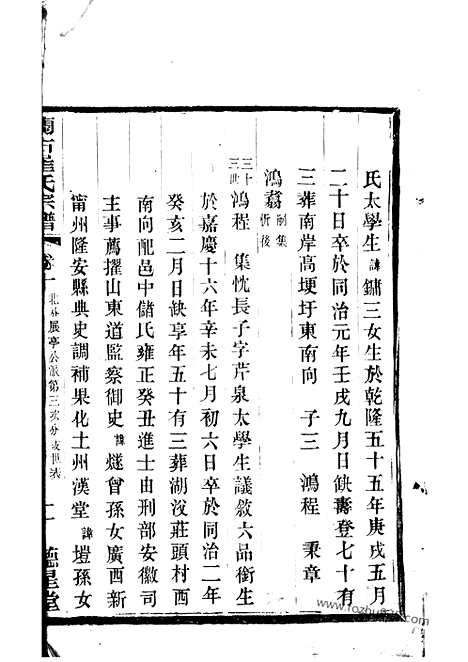 氏太學生諱鏞三女生於乾隆五十五年庚戌五月
二十日卒於同治元年壬戌九月日缺壽登七十有
三葬南岸高埂圩東南向 子三 鴻程 秉章
鴻翥嗣集忻後
三十三世鴻程 集忱長子字芹泉太學生議敘六品銜生
於嘉慶十六年辛未七月初六日卒於同治二年
癸亥二月日缺享年五十有三葬湖沒莊頭村西
南向配邑中儲氏雍正癸丑進士由刑部安徽司
主事薦擢山東道監察御史諱燧曾孫女廣西新
甯州隆安縣典史調補果化土州漢堂諱塏孫女
氏宗譜 卷十 北 展亭公派第三次分支世表 二 德星堂
www.fozhu920.com